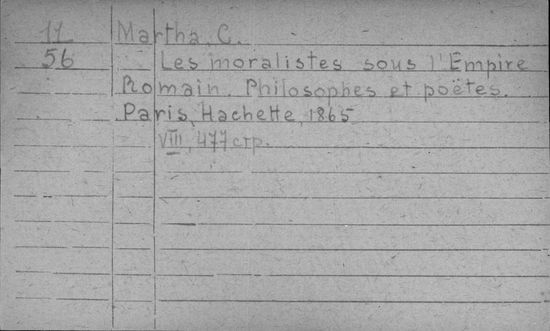 11 Martha, C.
56 Les moralistes sous l'Empire
Romain. Philosophes et poëtes.
Paris, Hachette, 1865
VIII, 477 стр.